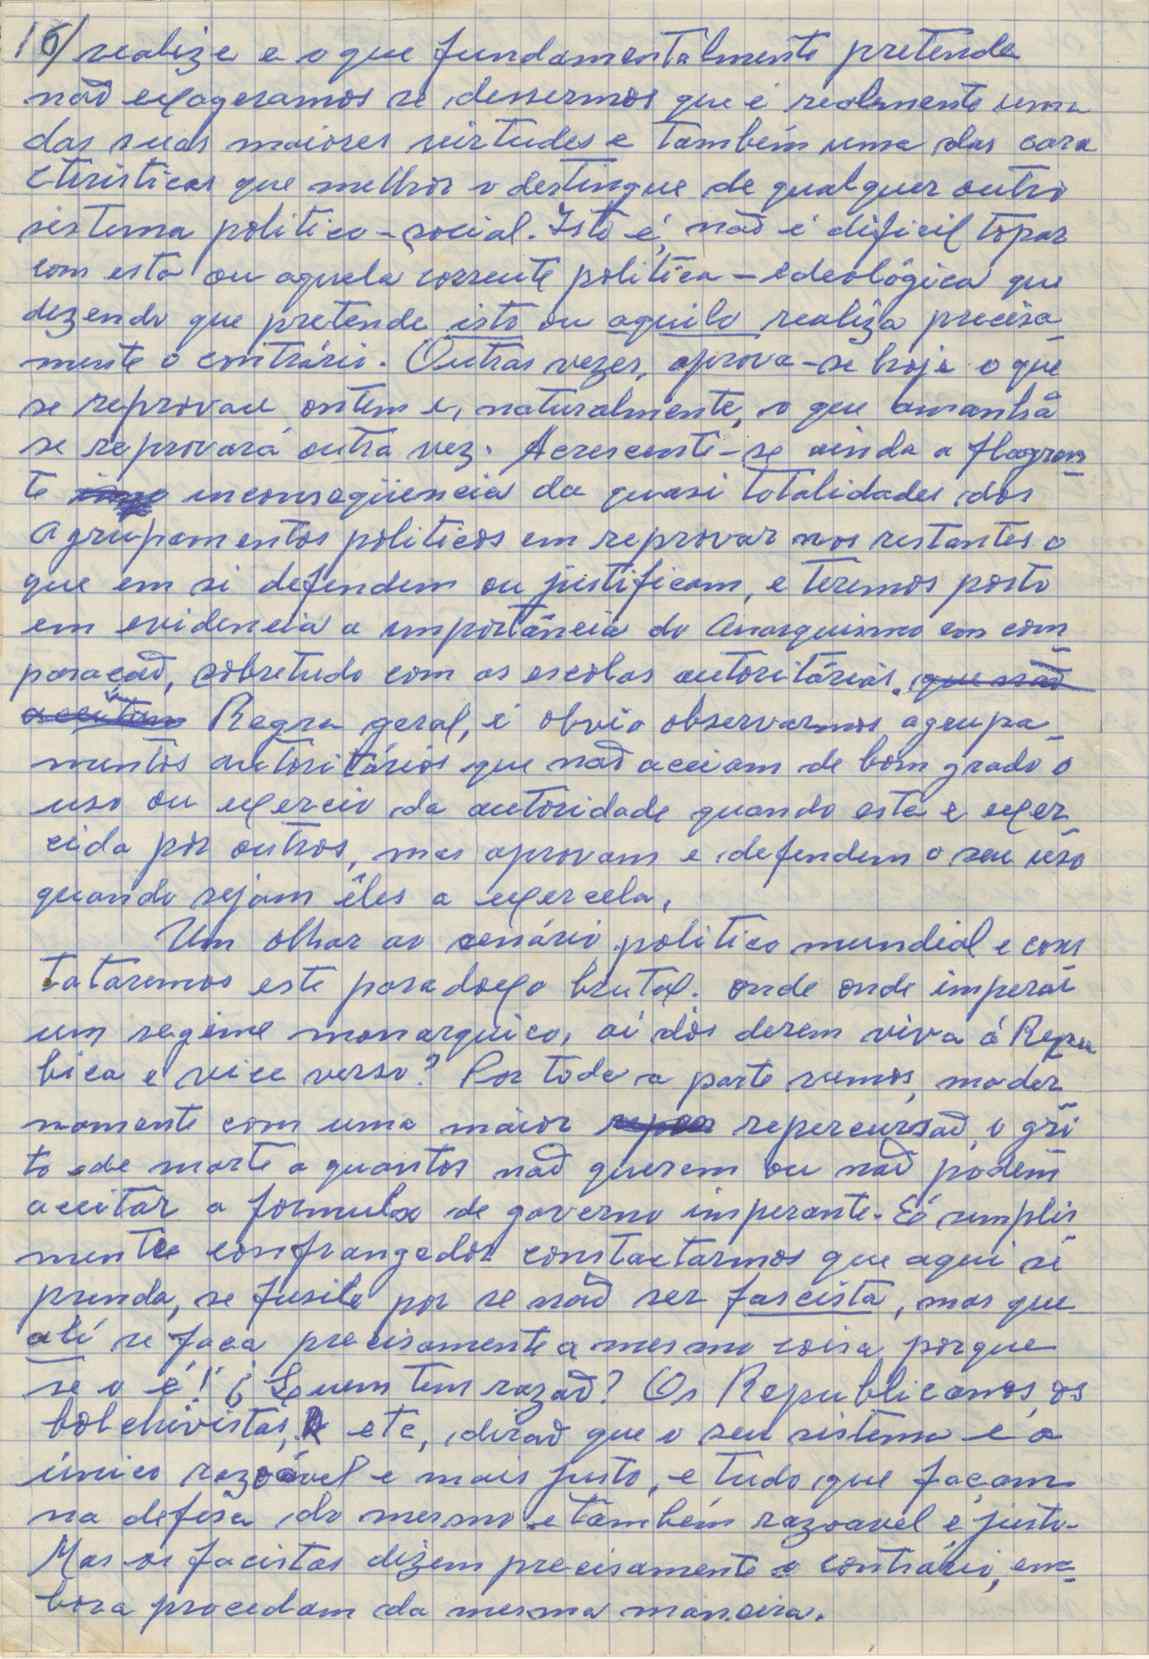 16/ realize e o que fundamentalmente pretende
não exageramos se dessermos que é realmente uma
das suas maiores virtudes e também uma das cara
cteristicas que melhor o destingue de qualquer outro
sistema politico-social. Isto é, não é dificil topar
com esta ou aquela corrente politica-edeológica que
dezendo que pretende isto ou aquilo realiza precisa
mente o contrário. Outras vezes, aprova-se hoje o que
se reprovou ontem e, naturalmente, o que amanhã
se reprovará outra vez. Acrescente-se ainda a flagran
te inconseqüencia da quasi totalidades dos
agrupamentos politicos em reprovar nos restantes o
que em si defendem ou justificam, e teremos posto
em evidencia a importância do Anarquismo em com_
paração, sobretudo com as escolas autoritárias. que não
aceitam Regra geral, é obvio observarmos agrupa_
mentos autoritários que não aceiam de bom grado o
uso ou exercio da autoridade quando esta e exer_
cida por outros, mas aprovam e defendem o seu uso
quando sejam êles a exercela.
Um olhar ao cenário politico mundial e cons
tataremos este paradoxo brutal. onde onde impera
um regime monarquico, ai dos derem viva á Repu
blica e vice verso? Por toda a parte vemos, moder
namente com uma maior repercursão, o gri
to de morte a quantos não querem ou não podem
aceitar a formula de governo imperante. É simples
mente confrangedor constactarmos que aqui se
prenda, se fusile por se não ser fascista, mas que
ali se faca precisamente a mesma coisa porque
se o é! ¿Quem tem razão? Os Republicanos, os
bolchivistas, etc, dirão que o seu sistema é o
único razoável e mais justo, e tudo que façam
na defesa do mesmo e também razoavel e justo.
Mas os facistas dizem precisamente o contrário, em_
bora procedam da mesma maneira.